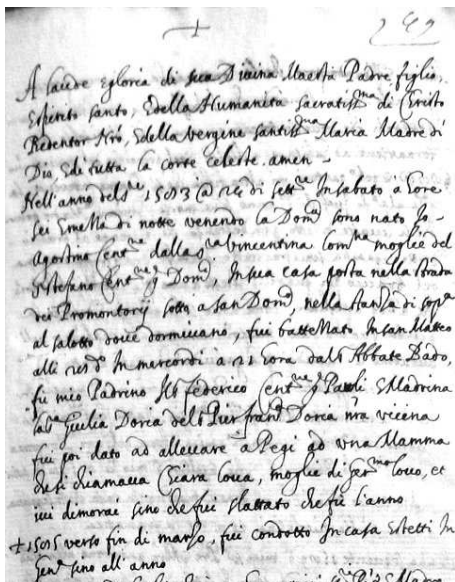 + 
A laude e gloria di sua Divina Maestà Padre figlio,
Spirito santo, E della Humanità sacratiss.ma di Christo
Redentor Nro, E della vergine santiss.ma Maria Madre di
Dio, E di tutta la corte celeste. amen -
Nell'anno del 1593 @ di sett.re In sabato a hore
sei E mezza di notte venendo la Dom.ca sono nato Io
Agostino Cent.ne dalla vincentina moglie del
Stefano Cent.ne q Dom.co, In sua casa posta nella strada
dei Promontorij sotto a san Dom.co, nella stanza di sopra
al salotto dove dormivano, fui battezzato In san Matteo
alli In mercordi à 21 hora dall Abbate Dado,
fu mio Padrino Federico Cent.ne q Paoli E Madrina
Giulia Doria dell Pier fran.co Doria nra vicina
fui poi dato ad allevare a Pegi ad una Mamma
che si chiamava Chiara, moglie di, et
ivi dimorai sino che fui slattato che fù l'anno
+ 1595 verso fin di marzo, fui condotto In casa In
Gen.a sino all'anno